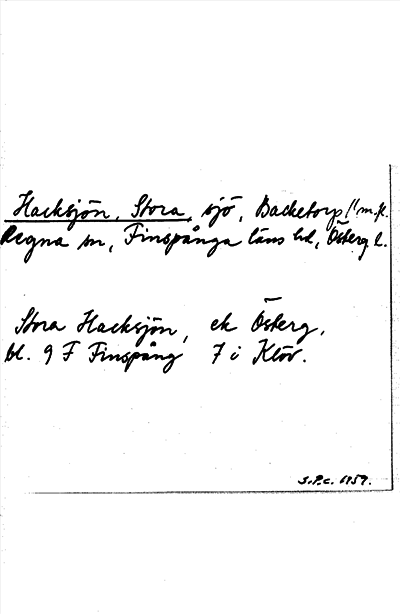 Hacksjön, Stora, sjö, Backetorp m.fl.
Regna sn, Finspånga läns hd, Österg. l.
Stora Hacksjön, ek Österg.
bl. 9 F Finspång 7 i Klöv.
1959.